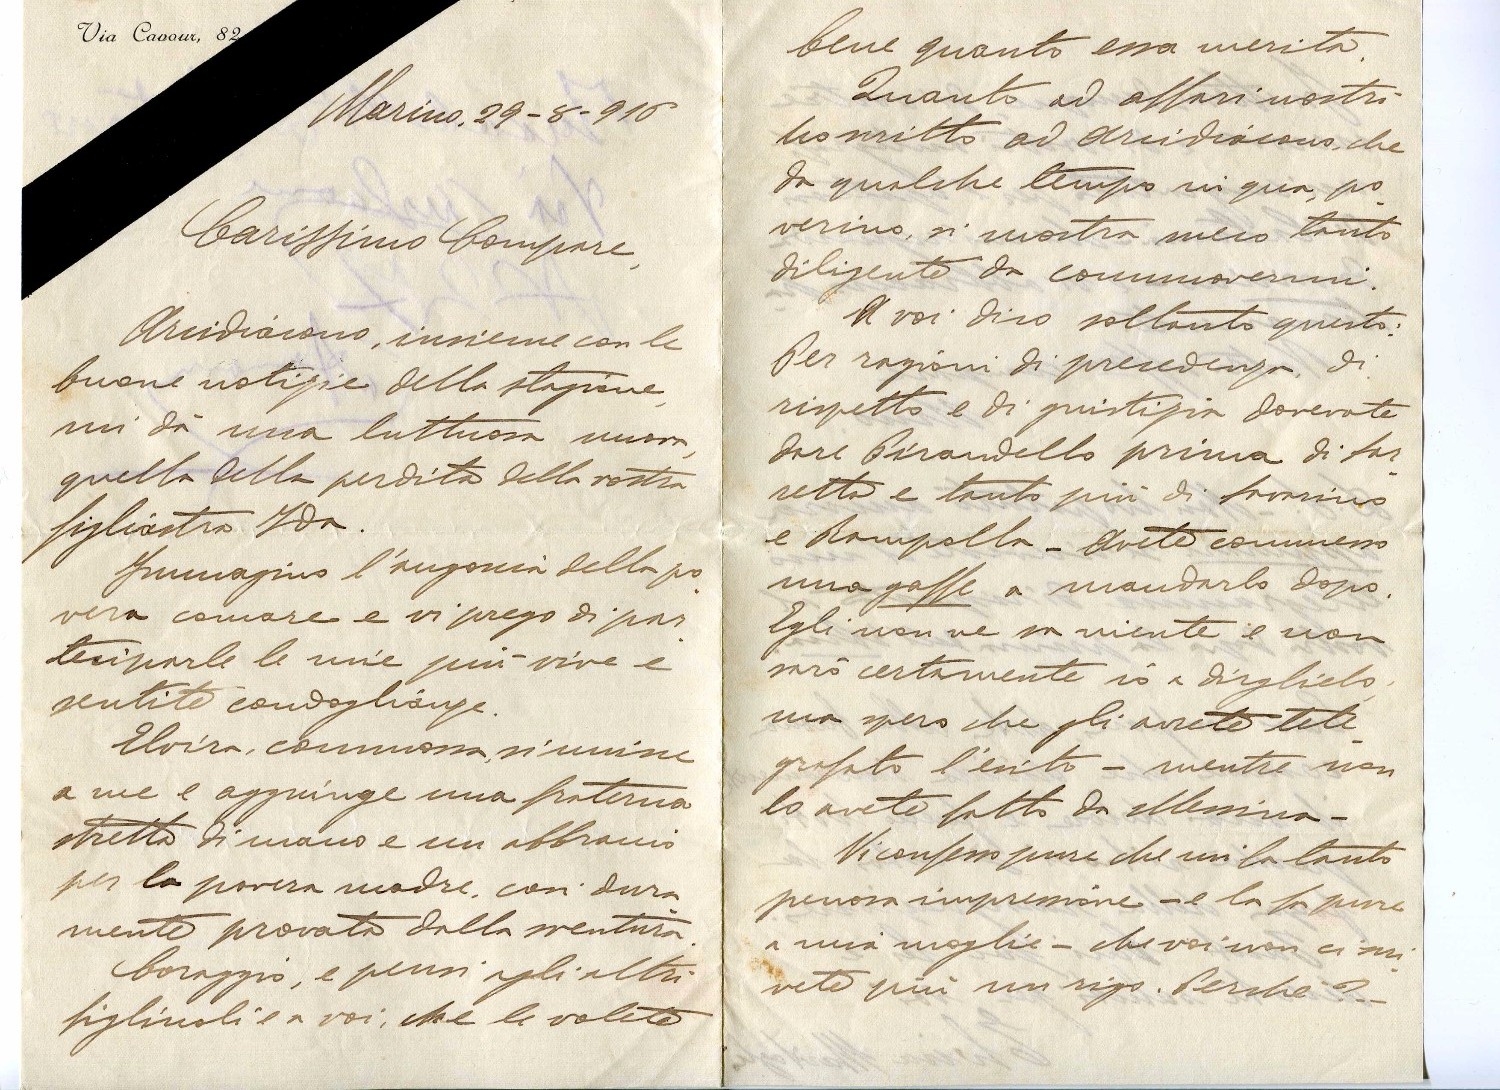 Via Cavour, 82
Marino, 29-8-916
Carissimo Compare,
Arcidiácono, insieme con le
buone notizie della stagione,
mi dà una luttuosa nuova,
quella della perdita della vostra
figliastra Ida.
Immagino l'angoscia della po
vera comare e vi prego di par
teciparle le mie più vive e
sentite condoglianze.
Elvira, commossa, si unisce
a me e aggiunge una fraterna
stretta di mano e un abbraccio
per la povera madre, così dura
mente provata dalla sventura.
Coraggio, e pensi agli altri
figliuoli e a voi, che le volete
bene quanto essa merita.
Quanto ad affari nostri
ho scritto ad Arcidiácono, che
da qualche tempo in qua, po-
verino, si mostra meco tanto
diligente da commovermi.
A voi dico soltanto questo:
Per ragioni di precedenza, di
rispetto e di giustizia dovevate
dare Pirandello prima di Sar-
retta e tanto più di Savarino
e Rampolla - Avete commesso
una gaffe a mandarlo dopo.
Egli non ne sa niente e non
sarò certamente io a dirglielo,
ma spero che gli avrete tele-
grafato l'esito - mentre non
lo avete fatto da Messina -
Vi confesso pure che mi fa tanto
penosa impressione - e la fa pure
a mia moglie - che voi non ci scri-
vete più un rigo. Perché? -